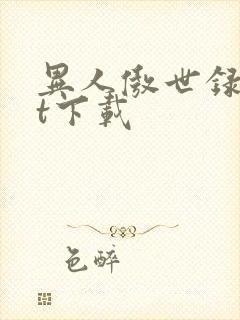 異人傲世録
t下載
色醉